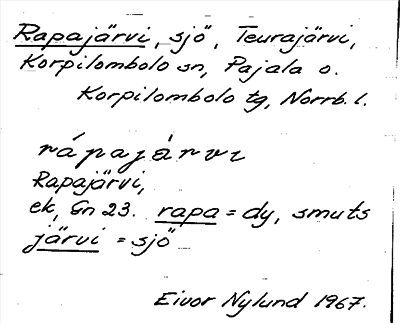 Rapajärvi, sjö, Teurajärvi,
Korpilombolo sn, Pajala o.
Korpilombolo tg, Norrb. l.
rápajärvı
Rapajärvi,
ek, Gn 23. rapa = dy, smuts
järvi = sjö
Eivor Nylund 1967.